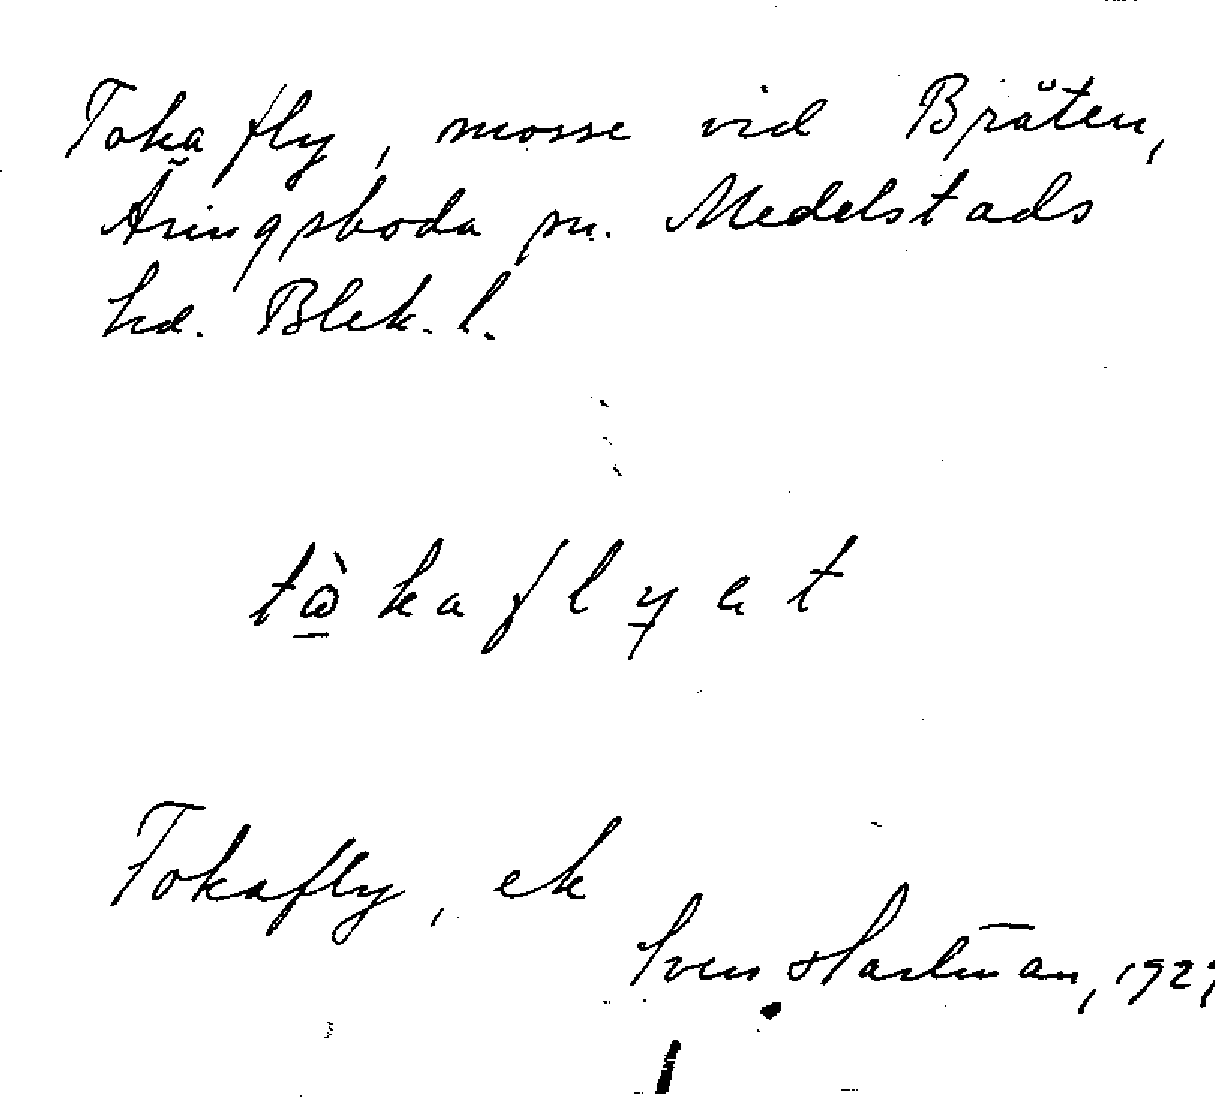 Tokafly, mosse vid Bråten,
Äringsboda sn. Medelstads
hd. Blek. l.
tὼ̠kafly̠at
Tokafly, ek
Sven Hartman, 1927